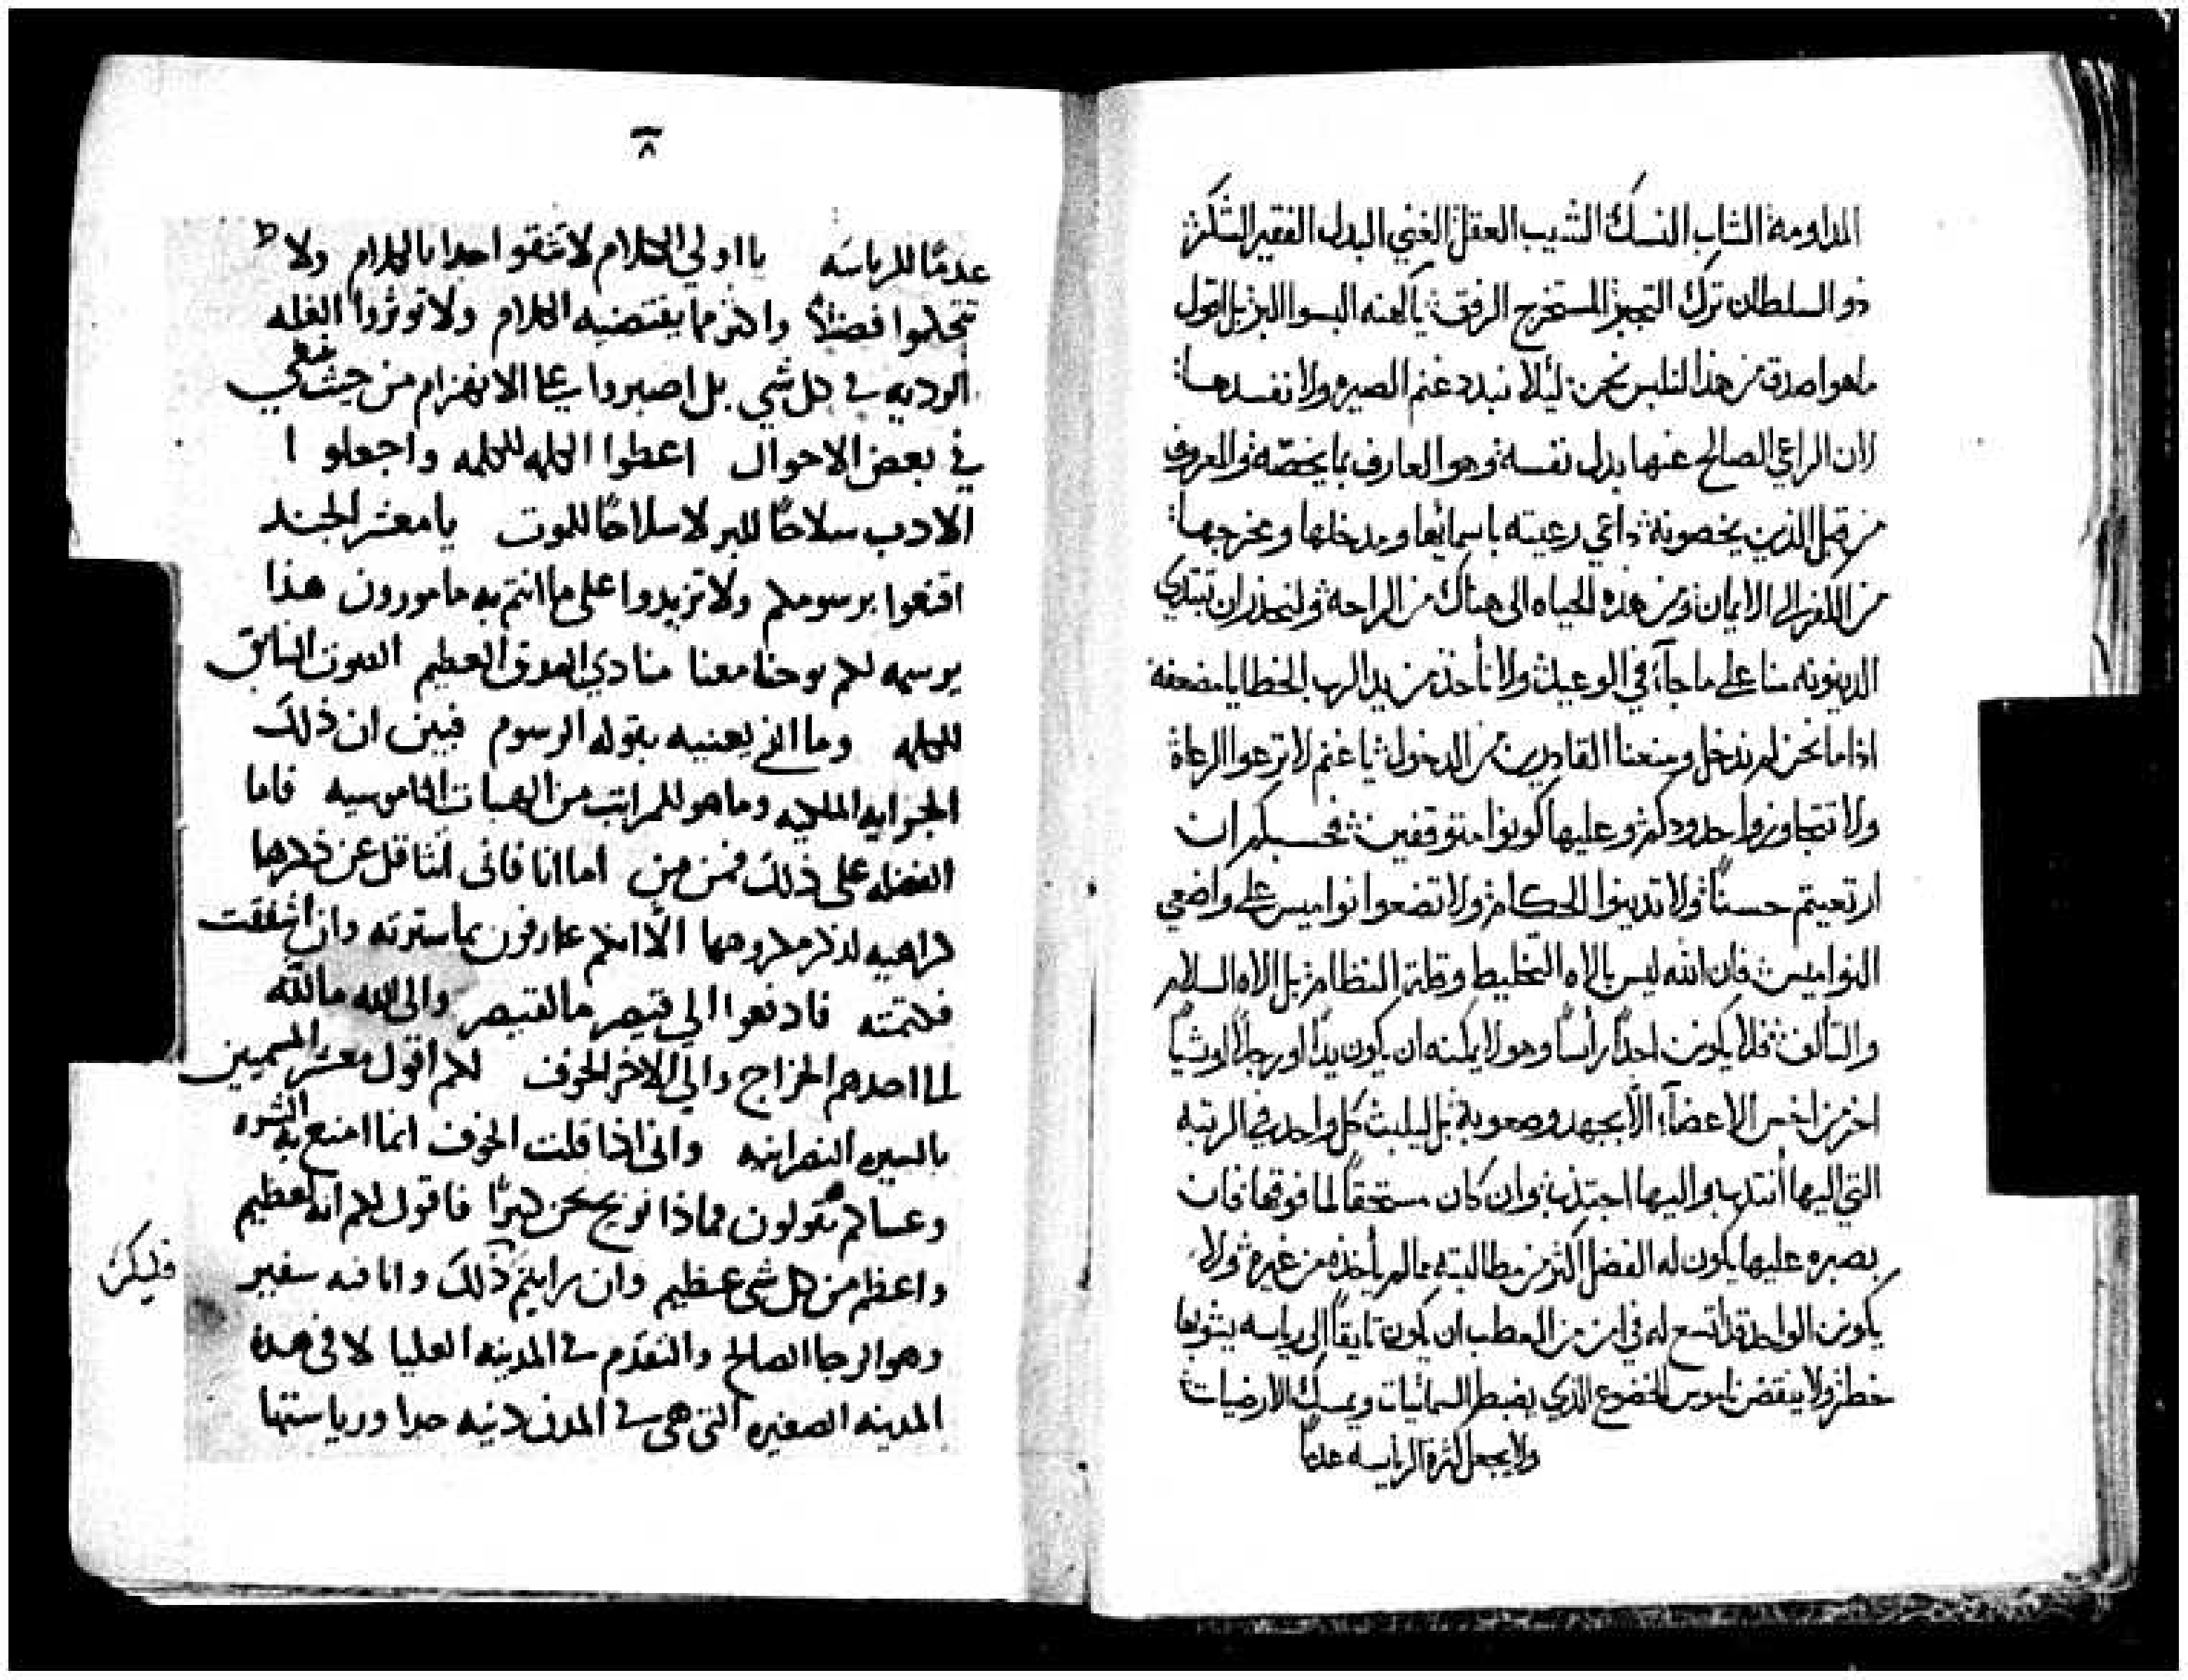 المداومة الشاب النسك الشيب العقل الغني البدل الفقير الشكر
ذو السلطان ترك التجبر المستخرج الرفق يا كهنه البسوا البر بل القول
ما هو اصدق من هذا لنلبس نحن ليلا نبدد غنم الصيره ولا نفسدها
لان الراعي الصالح عنها بدل نفسه وهو العارف بما يخصه والمعروف
من قبل الذين يخصونه داعي رعيته باسمائها ومدخلها ومخرجها
من الكفر الى الايمان ومن هذه الحياه الى هناك من الراحه ولنحذر ان تبتدي
الدينونه منا على ما جآء في الوعيد ولا نأخذ من يد الرب الخطايا مضعفه
اذا ما نحن لم ندخل ومنعنا القادرين من الدخول يا غنم لا ترعوا الرعاة
ولا تتجاوزوا حدودكم وعليها كونوا متوقفين فحسبكم ان
ارتعيتم حسنًا ولا تدينوا الحكام ولا تضعوا نواميس على واضعي
النواميس فان الله ليس بالاه التخليط وقلة النظام بل الاه السلام
والتألف فلا يكونن احدًا رأسًا وهو لا يمكنه ان يكون يدًا او رجلًا او شيًا
اخر من اخس الاعضآء الا بجهد وصعوبة بل ليلبث كل واحد في الرتبه
التي اليها انتدب واليها اجتذب وان كان مستحقًا لما فوقها فان
بصبره عليها يكون له الفضل اكثر من مطالبته بما لم يأخذه من غيره ولا
يكونن الواحد قد اتسع له في امن من العطب ان يكون تايقًا الى رياسه يشوبها
خطر ولا ينقض ناموس الخضوع الذي يضبط السمائيات ويمسك الارضيات
ولا يجعل كثرة الرياسه عدمًا
٨
عدمًا للرياسه يا اولي الكلام لا تثقوا جدا بالكلام ولا
تتحكموا فضلًا واكثر مما يقتضيه الكلام ولا توثروا الغلبه
الرديه في كل شي بل اصبروا على الانهزام من حيث ينبغي
في بعض الاحوال اعطوا الكلمه للكلمه واجعلوا
الادب سلاحًا للبر لا سلاحًا للموت يا معشر الجند
اقنعوا برسومكم ولا تزيدوا على ما انتم به مامورون هذا
يرسمه لكم يوحنا معنا منادي الحق العظيم الصوت السابق
للكلمه وما الذي يعنيه بقوله الرسوم فبين ان ذلك
الجرايه الملكيه وما هو للمراتب من الهبات الناموسيه فاما
الفضله على ذلك فمن من اما انا فاني اتثاقل عن ذكرها
كراهيه لذكر مكروهها الا انكم عارفون بما سترته وان اشفقت
فكتمته فادفعوا الى قيصر ما لقيصر والى الله ما لله
لما احدهم الخراج والى الاخر الخوف لكم اقول معشر المسمين
بالسيره النصرانيه واني اذا قلت الخوف انما امنع به الشره
وعساكم تقولون فماذا نربح نحن خيرًا فاقول لكم انه لعظيم
واعظم من كل شي عظيم وان رايتم ذلك وانا فيه سفير
وهو الرجا الصالح والتقدم في المدينه العليا لا في هذه
المدينه الصغيره التي هي في المدن دنيه جدا ورياستها
فليكن